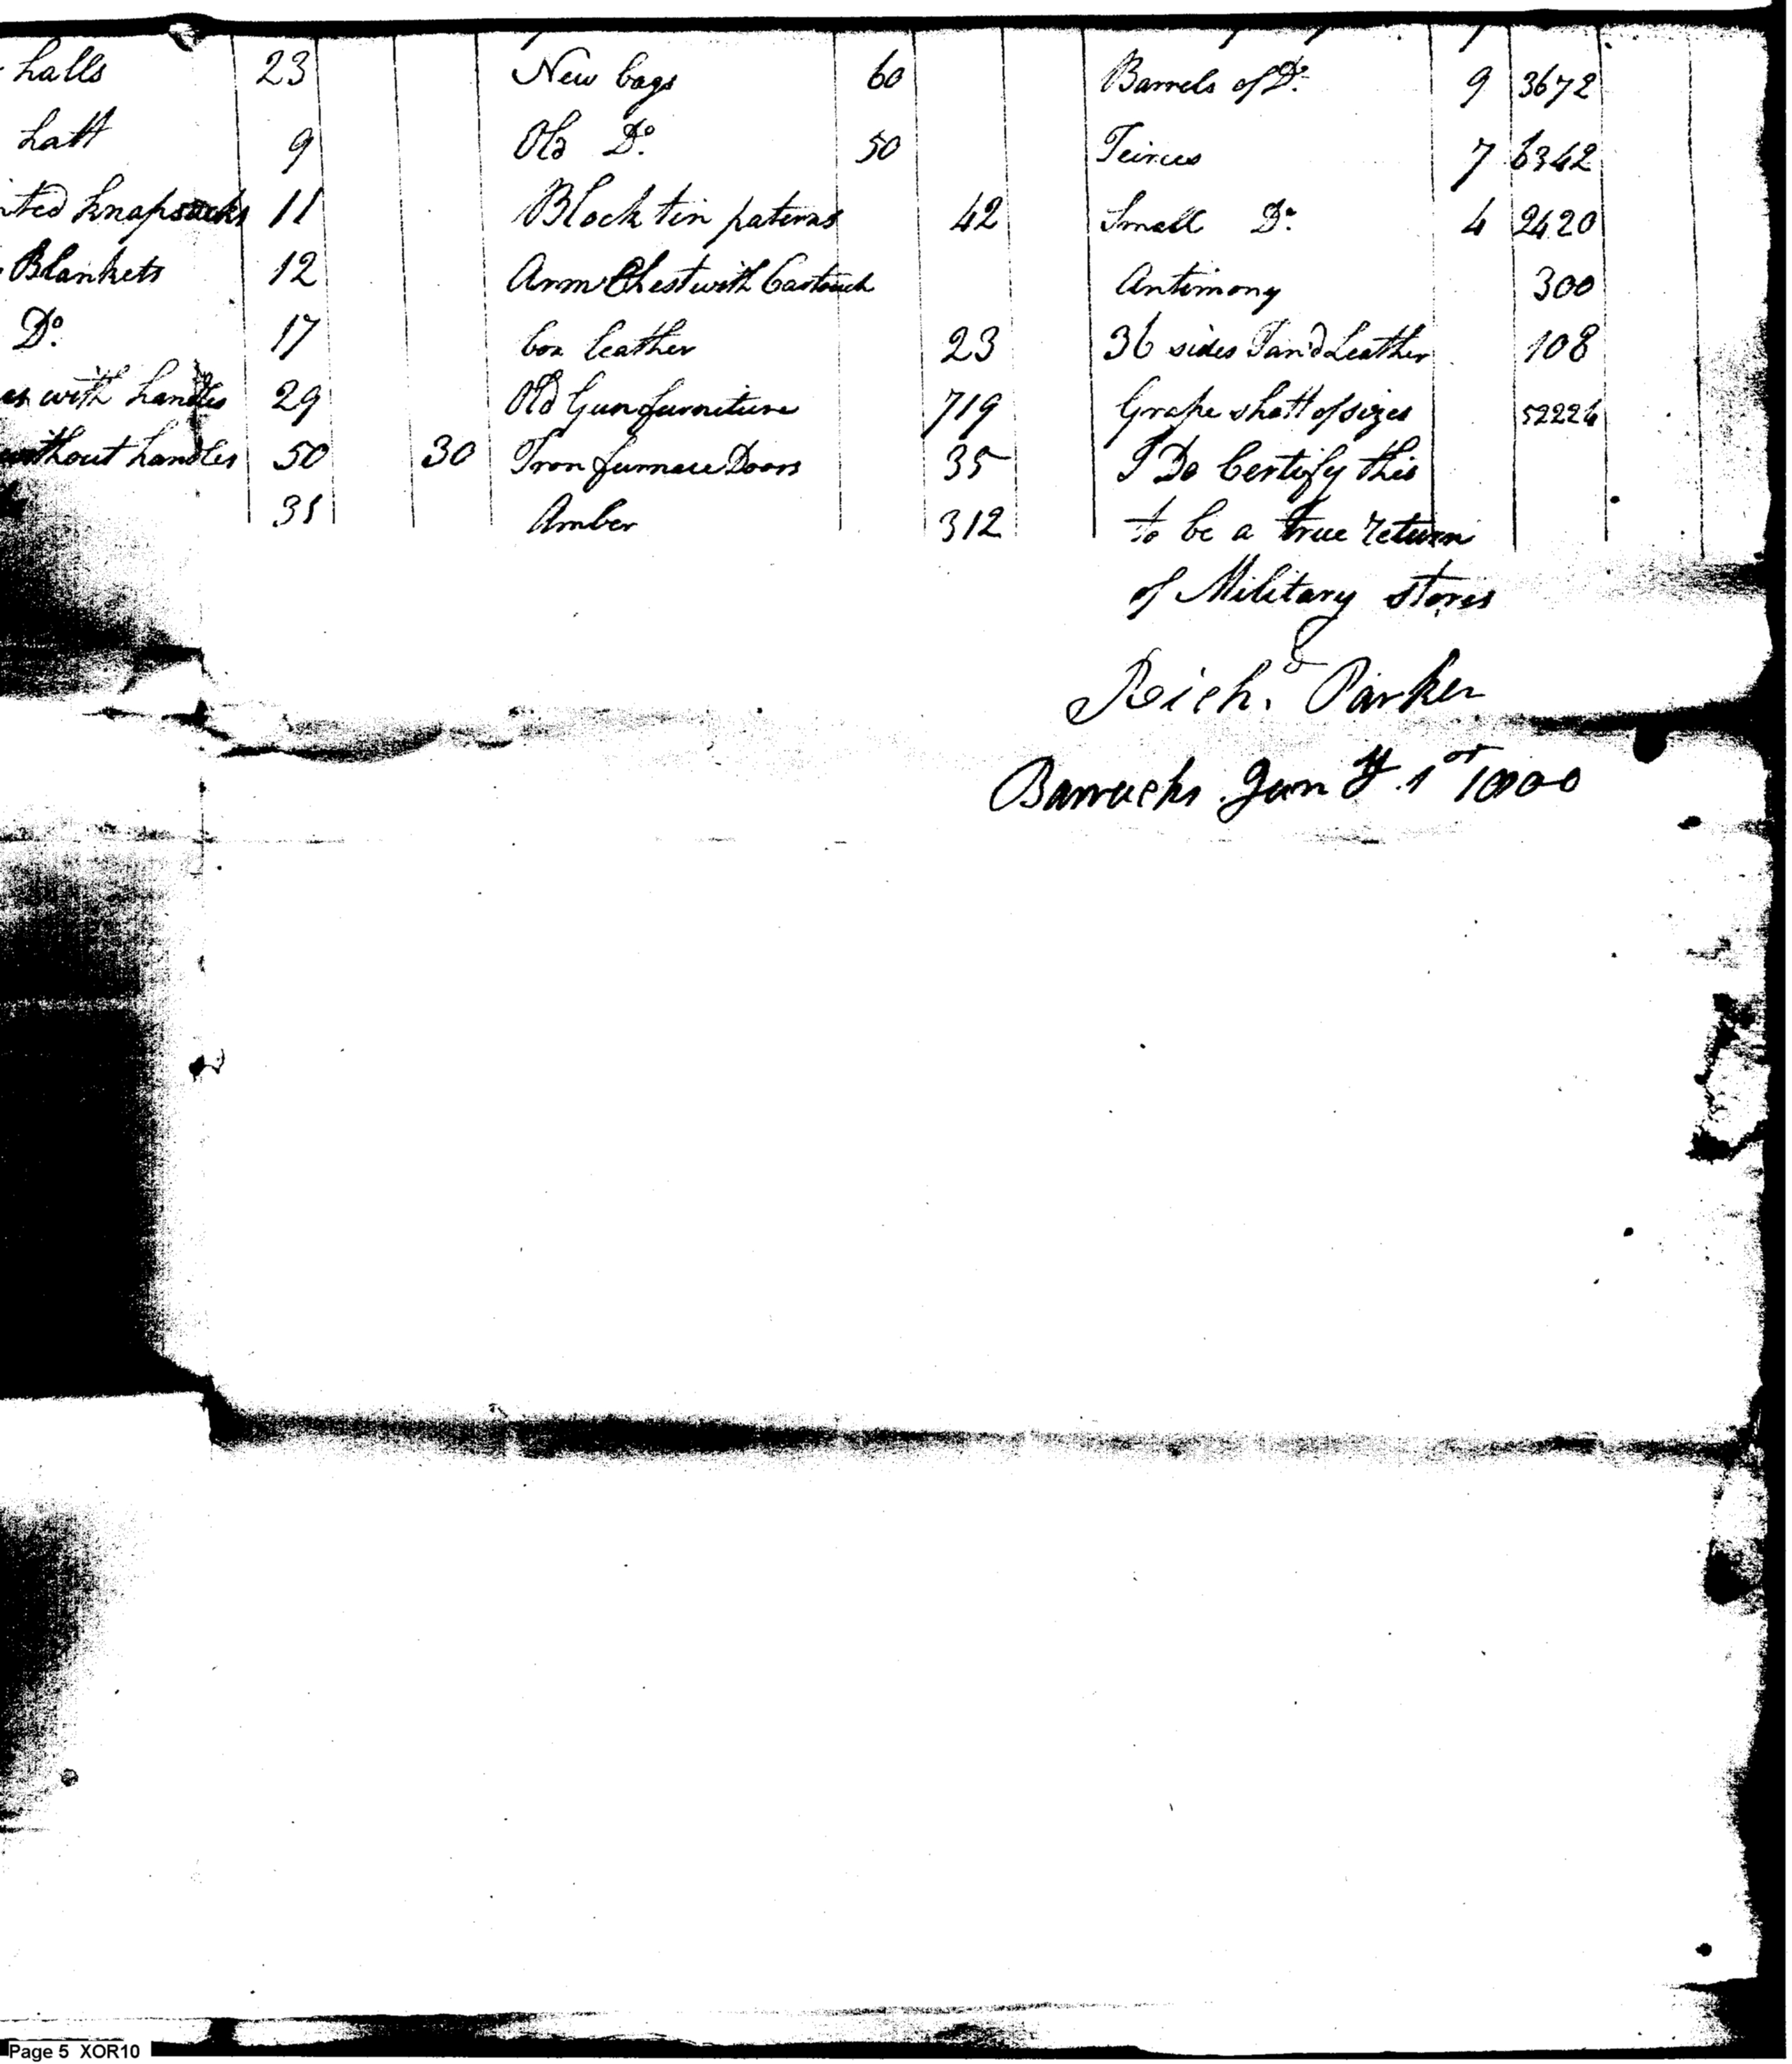 halls 23 New bags 60 Barrels of Do. 9 3672
hatt 9 Old Do. 50 Teirces 7 6342
nted knapsacks 11 Block tin paterns 42 Small Do. 4 2420
Blankets 12 Arm Chest with Cartouch Antimony 300
Do. 17 box leather 23 36 sides Tan'd Leather 108
es with handles 29 Old Gun furniture 719 Grape shott of sizes 52224
without handles 50 30 Iron furnace Doors 35 I Do Certify this
31 Amber 312 to be a true return
of Military stores
Richd. Parker
Barracks Jany 1st 1800
Page 5 XOR10